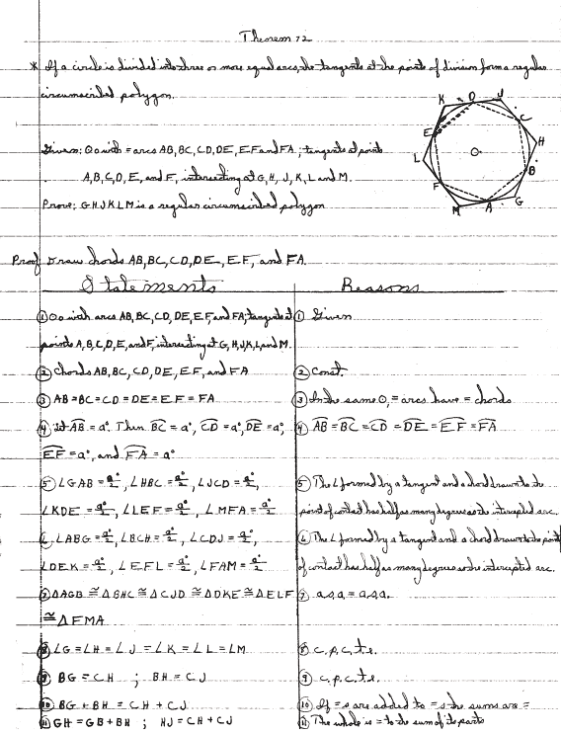 Theorem 72
* If a circle is divided into three or more equal arcs, the tangents at the points of division form a regular
circumscribed polygon.
Given: O o with = arcs AB, BC, CD, DE, EF and FA; tangents at points
A, B, C, D, E, and F, intersecting at G, H, J, K, L and M.
Prove: GHJKLM is a regular circumscribed polygon
K D J
E C
H
L O
B
F
M A G
Proof Draw chords AB, BC, CD, DE, EF, and FA.
Statements Reasons
① O o with arcs AB, BC, CD, DE, EF, and FA; tangents at ① Given
points A, B, C, D, E, and F, intersecting at G, H, J, K, L, and M.
② Chords AB, BC, CD, DE, EF, and FA ② Const.
③ AB = BC = CD = DE = EF = FA ③ In the same O, = arcs have = chords
④ Let A͡B = a°. Then B͡C = a°, C͡D = a°, D͡E = a°, ④ A͡B = B͡C = C͡D = D͡E = E͡F = F͡A
E͡F = a°, and F͡A = a°
⑤ ∠GAB = a°/2, ∠HBC = a°/2, ∠JCD = a°/2, ⑤ The ∠ formed by a tangent and a chord drawn to the
∠KDE = a°/2, ∠LEF = a°/2, ∠MFA = a°/2 point of contact has half as many degrees as the intercepted arc.
∠ABG = a°/2, ∠BCH = a°/2, ∠CDJ = a°/2, ⑥ The ∠ formed by a tangent and a chord drawn to the point
∠DEK = a°/2, ∠EFL = a°/2, ∠FAM = a°/2 of contact has half as many degrees as the intercepted arc.
△AGB ≅ △BHC ≅ △CJD ≅ △DKE ≅ △ELF ⑦ a.s.a = a.s.a.
≅ △FMA
⑧ ∠G = ∠H = ∠J = ∠K = ∠L = ∠M ⑧ c.p.c.t.e.
⑨ BG = CH ; BH = CJ ⑨ c.p.c.t.e.
⑩ BG + BH = CH + CJ ⑩ If =s are added to =s the sums are =
⑪ GH = GB + BH ; HJ = CH + CJ ⑪ The whole is = to the sum of its parts